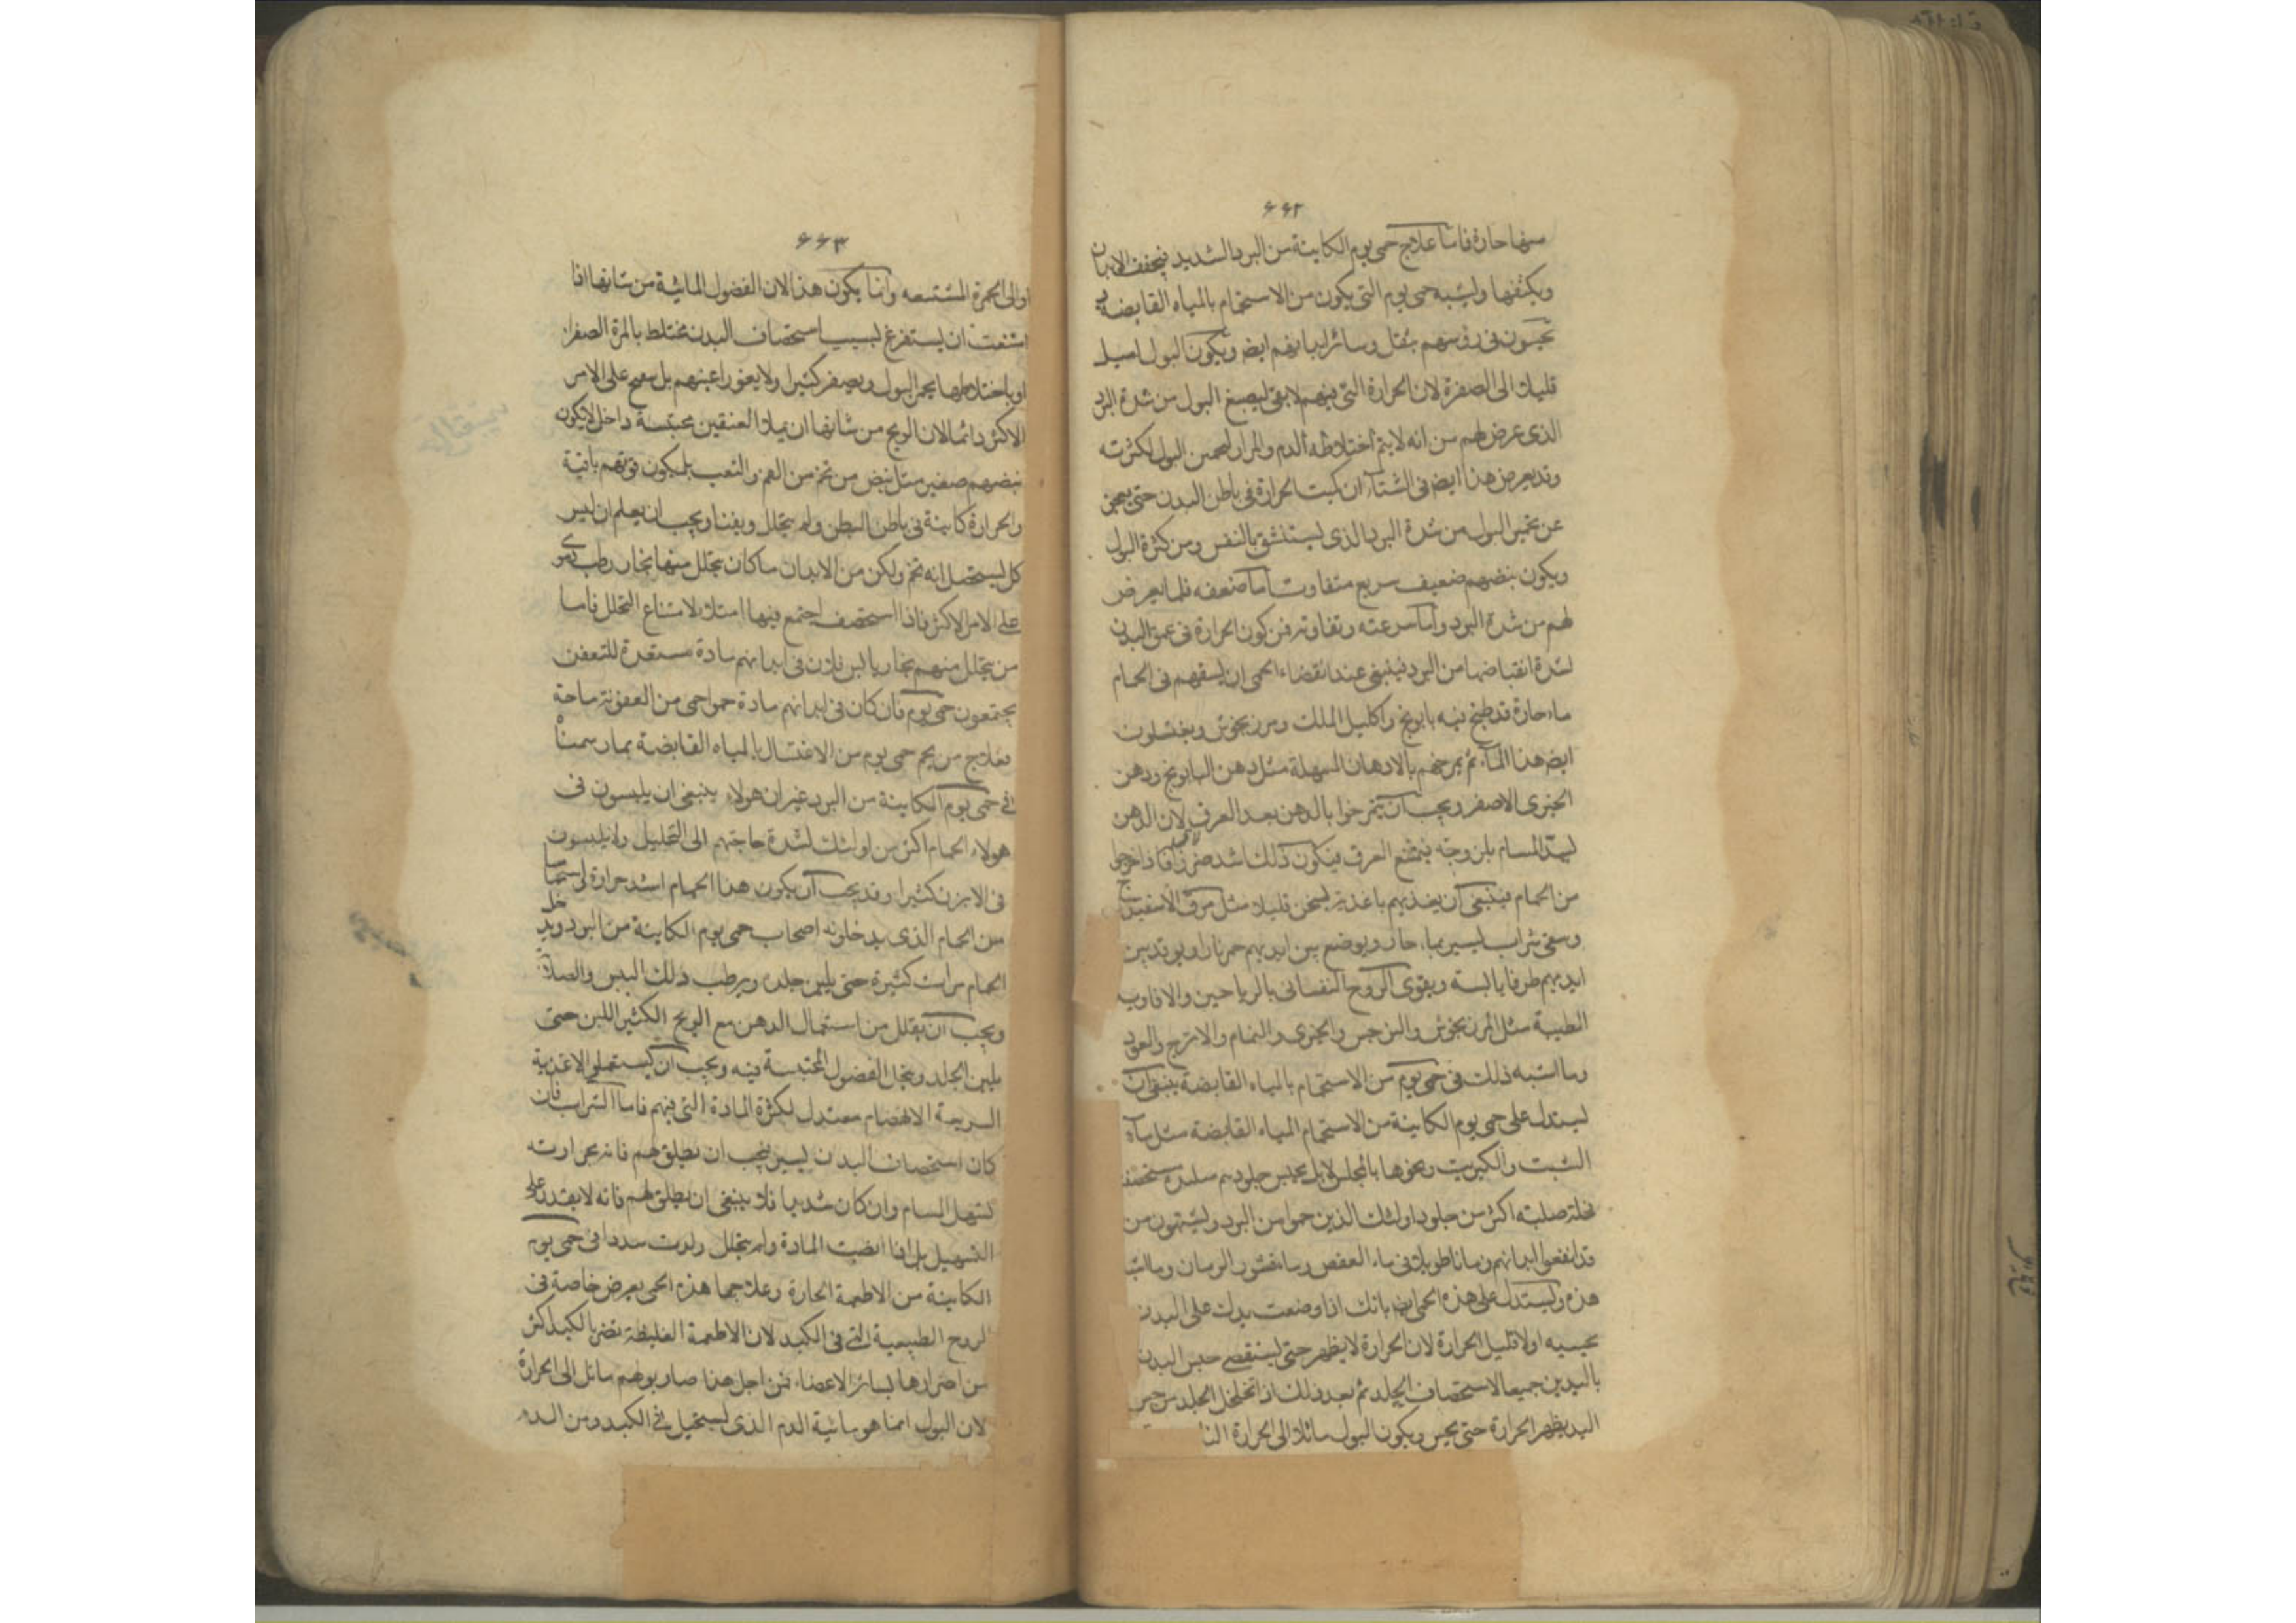 ۶۶۲
منها حارة فاما علاج حمى يوم الكاينة من البرد الشديد فيجفف الابدان
ويكثفها ويشبه حمى يوم التى يكون من الاستحمام بالمياه القابضة
يحسون فى رؤسهم بثقل وسائر ابدانهم ايضا ويكون البول اميل
قليلا الى الصفرة لان الحرارة التى فيهم لا يقى ليصبغ البول من شدة البرد
الذى عرض لهم من انه لا يتم اختلاطه الدم والمرار البول لكثرته
وقد يعرض هذا ايضا فى الشتاء ان كبت الحرارة فى باطن البدن حتى يعجز
عن تغير البول من شدة البرد الذى يستنشق بالنفس ومن كثرة البول
ويكون نبضهم ضعيف سريع متفاوت اما ضعفه فلما يعرض
لهم من شدة البرد واما سرعته وتفاوته فمن كون الحرارة فى عمق البدن
لشدة انقباضها من البرد فينبغى عند انقضاء الحمى ان يسقهم فى الحمام
ماء حارة قد طبخ فيه بابونج واكليل الملك ومرزنجوش ويغتسلون
ايضا هذا الماء ثم يمرخهم بالادهان السهلة مثل دهن البابونج ودهن
الخيرى الاصفر ويجب ان يتمرخوا بالدهن بعد العرق لان الدهن
ليسد المسام بلزوجته فيمنع العرق فيكون ذلك اشد ضررا فاذا خرجوا
من الحمام فينبغى ان يغذيهم باغذية يسخن قليلا مثل مرق الاسفيداج
وسقى شراب يسير بماء حار ويوضع بين ايديهم جمر نار ويوقد بين
ايديهم طرفا يابسة ويقوى الروح النفسانى بالرياحين والافاويه
الطيبة مثل المرزنجوش والنرجس والخيرى والنمام والاترج والعود
وما اشبه ذلك فى حمى يوم من الاستحمام بالمياه القابضة ينبغى ان
ليستدل على حمى يوم الكاينة من الاستحمام المياه القابضة مثل ماء
الشبت والكبريت ونحوها بالمجلس لا بل يحبس جلودهم
صلبة اكثر من جلود اولئك الذين حموا من البرد ويشبهون من
قد انقعوا ابدانهم زمانا طويلا فى ماء العفص وماء قشور الرمان وما اشبه
هذه وليستدل على هذه الحمى ايضا بانك اذا وضعت يدك على البدن
يحسبه اولا قليل الحرارة لان الحرارة لا يظهر حتى يستقصى حبس البدن
باليدين جميعا لاستحصاف الجلد ثم بعد ذلك اذا تخلخل الجلد من حبس
اليد يظهر الحرارة حتى يحس ويكون البول مائلا الى الحرارة
۶۶۳
والى الحمرة المشتبعه وانما يكون هذا لان الفضول المائية من شانها اذا
امتنعت ان يستفرغ لسبب استحصاف البدن يختلط بالمرة الصفراء
وباختلاطها يحمر البول ويصفر كثيرا ولا يغور اعينهم بل على الامر
الاكثر دائما لان الريح من شانها ان يملا العينين محتبسة داخل لا يكون
نبضهم صغير مثل نبض من تخم من الهم والتعب بل يكون قوتهم باقية
والحرارة كاينة فى باطن البطن ولم يتحلل ويفنا ويجب ان يعلم ان ليس
كل ليستحصل انه تخم ولكن من الابدان ما كان يتحلل منها بخار رطب دموى
على الامر الاكثر فاذا استحصف اجتمع فيها امتلاء لامتناع التحلل فاما
من يتحلل منهم بخار يابس فان فى ابدانهم مادة مستعدة للتعفن
يجتمعون حمى يوم فان كان فى ابدانهم مادة حموا حمى من العفونة ساحة
معلاج من يحم حمى يوم من الاغتسال بالمياه القابضة بما رسمنا
فى حمى يوم الكاينة من البرد غير ان هولاء ينبغى ان يلبسون فى
هولاء الحمام اكثر من اولئك لشدة حاجتهم الى التحليل ولا يلبسون
فى الابزن كثيرا وقد يجب ان يكون هذا الحمام اشد حرارة
من الحمام الذى يدخلونه اصحاب حمى يوم الكاينة من البرد ويدخل
الحمام مرات كثيرة حتى يلين جلده ويرطب ذلك اليبس والصلابة
ويجب ان يقلل من استعمال الدهن مع الريح الكثير اللين حتى
يلين الجلد ويتحلل الفضول المحتبسة فيه ويجب ان يستعملوا الاغذية
السريعة الانهضام معتدل لكثرة المادة التى فيهم فاما الشراب فان
كان استحصاف البدن ليسير فيجب ان يطلق لهم فانه بحرارته
يسهل المسام وان كان شديدا فلا ينبغى ان يطلق لهم فانه لا يقدر على
التسهيل بل اذا انضبت المادة ولم يتحلل ولدت سددا فى حمى يوم
الكاينة من الاطعمة الحارة وعلاجها هذه الحمى يعرض خاصة فى
لروح الطبيعية التى فى الكبد لان الاطعمة الغليظة تضر بالكبد اكثر
من اضرارها لسائر الاعضاء فمن اجل هذا صار بولهم مائل الى الحرارة
لان البول انما هو مائية الدم الذى ليستحيل فى الكبد ومن الدم